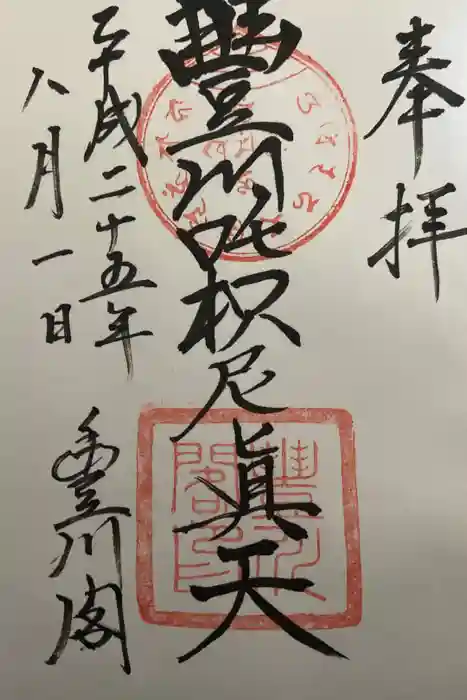 奉拝
豐川吒枳尼眞天
平成二十五年
八月一日
豐川閣